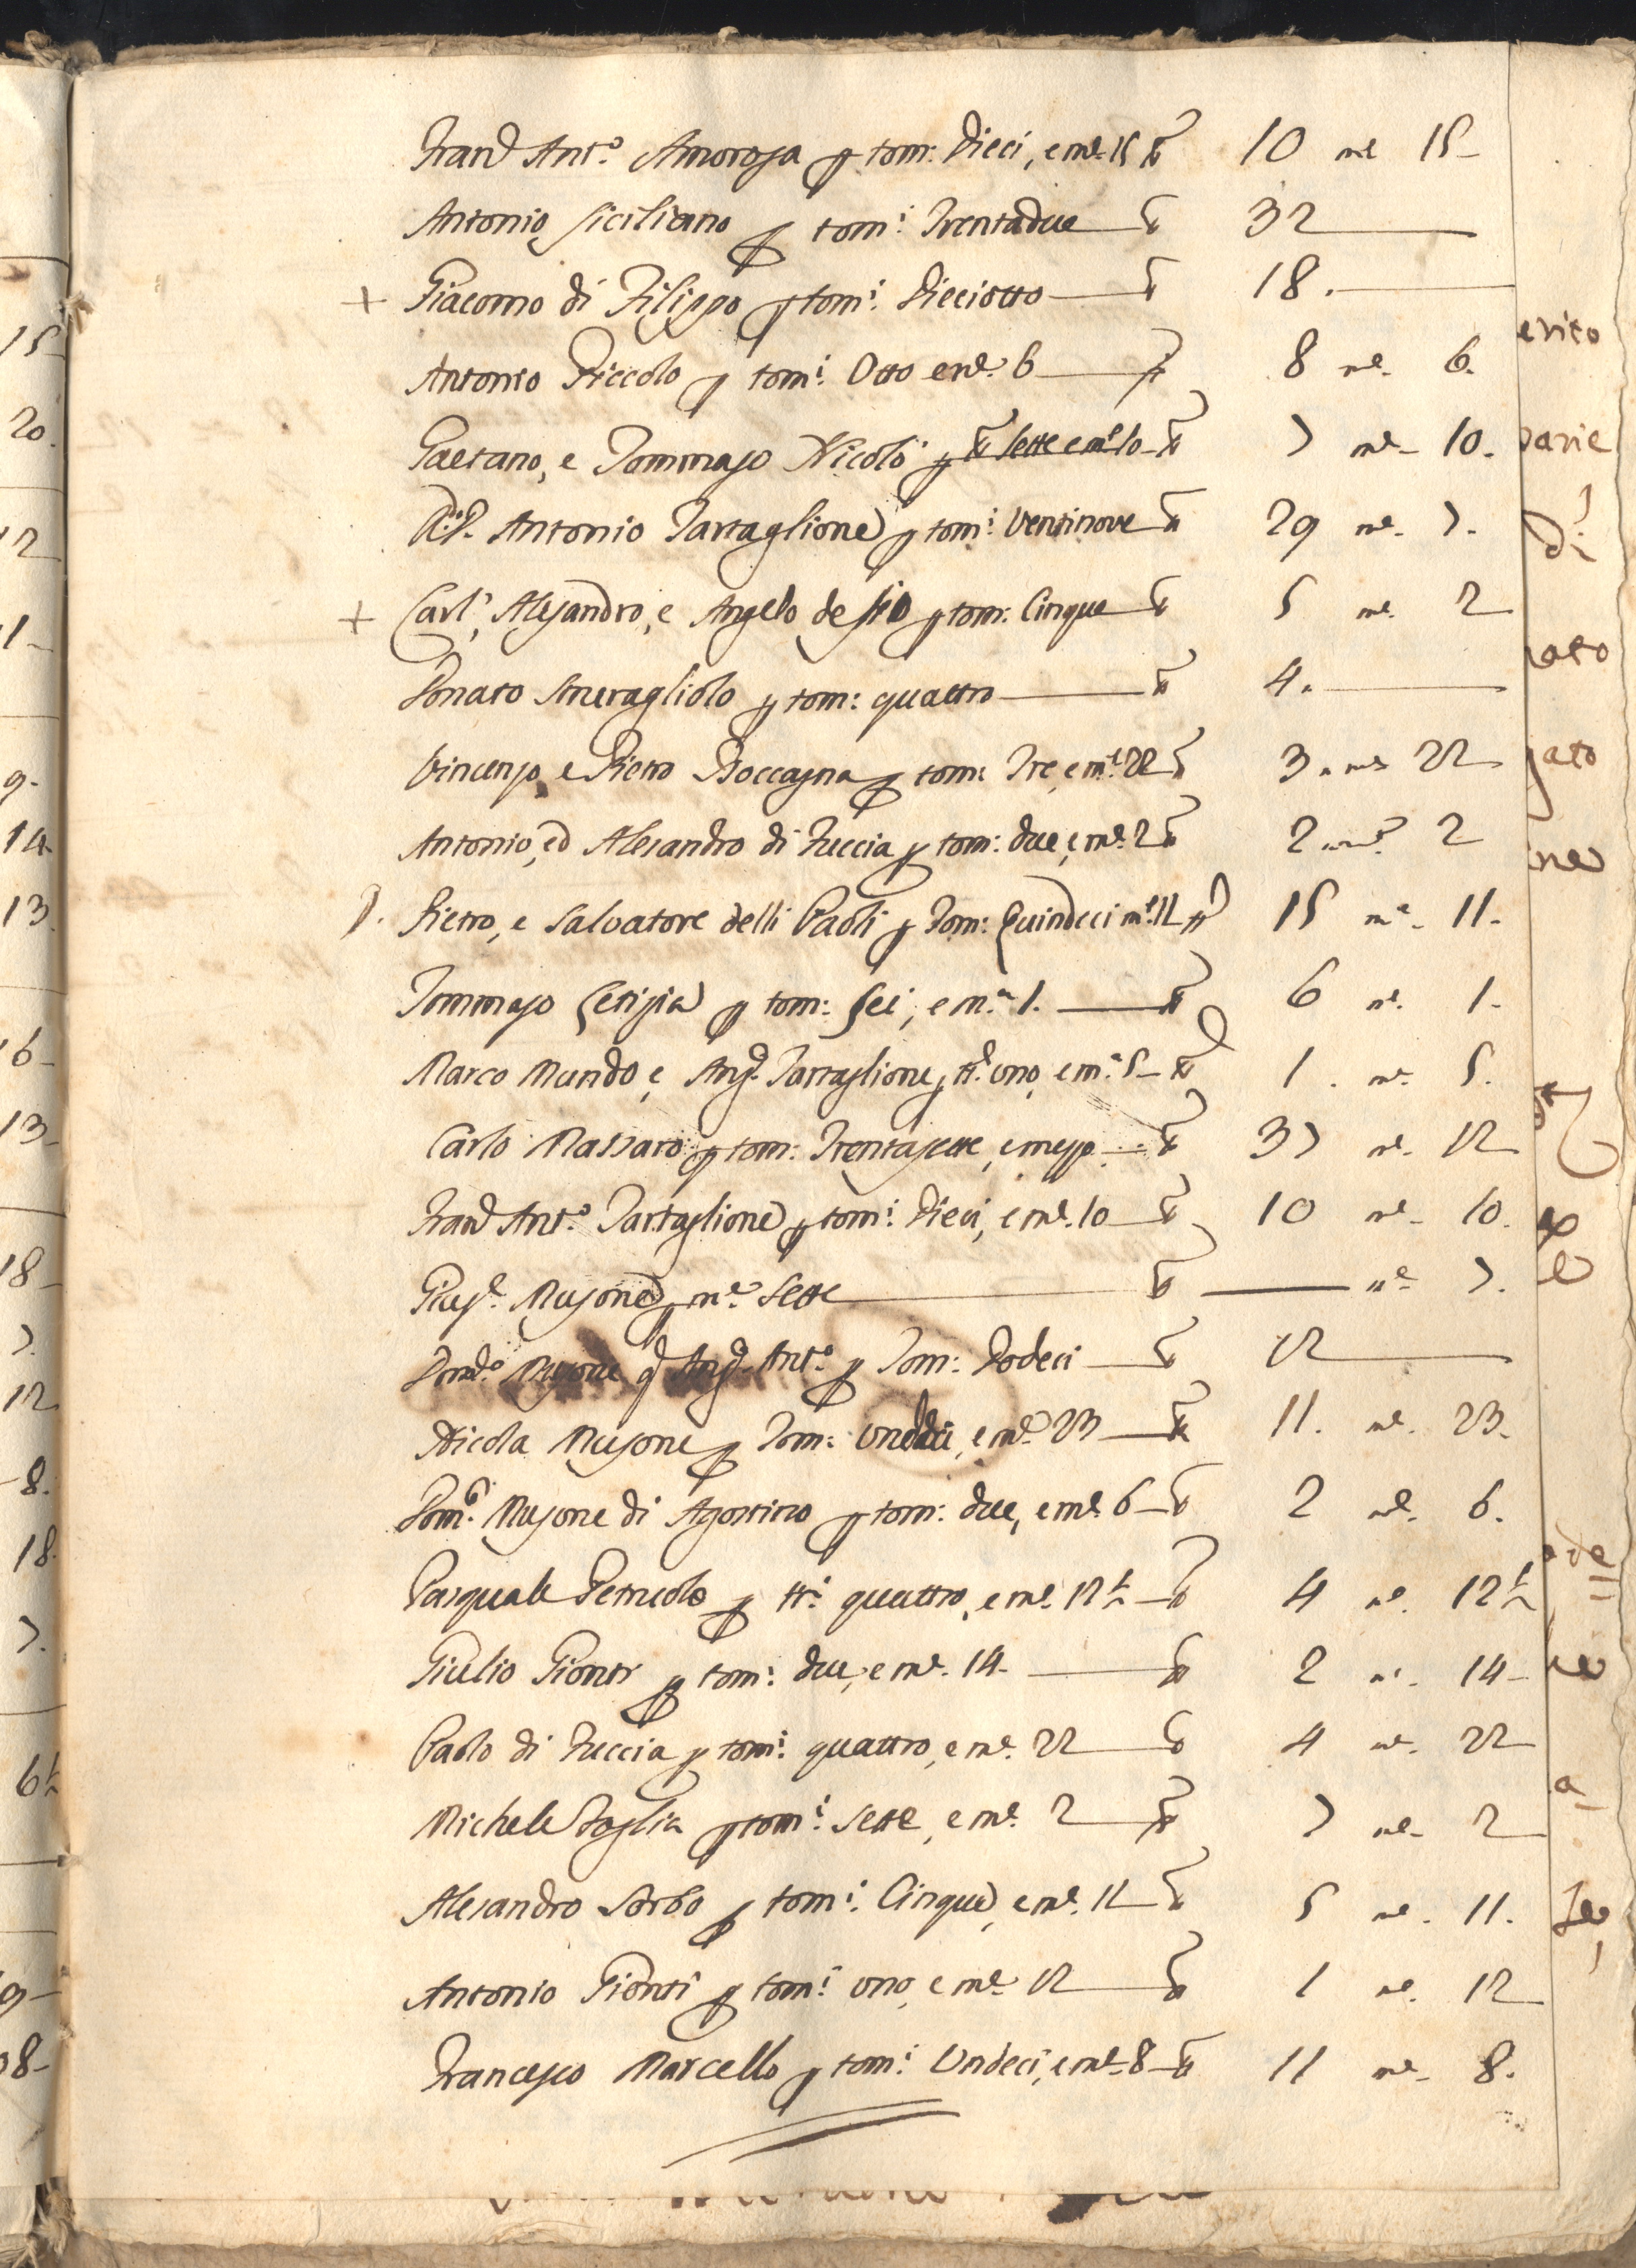 Fran.co Ant.o Amorosa p tom: Dieci, e mē 15 tt 10 mē 15-
Antonio Siciliano p tom.i Trentadue — tt 32 —
+ Giacomo di Filippo p tom.i Dieciotto — tt 18. —
Antonio Piccolo p tom.i Otto e mē. 6 — tt 8 mē. 6.
Gaetano, e Tommaso Nicolò p tt sette e mē 10 - tt 7 mē - 10.
Antonio Tartaglione p tom.i Ventinove tt 29 mē. 7.
+ Carl', Alesandro, e Angelo de Sio p tom: Cinque tt 5 mē. 2
Donato p tom: quattro — tt 4. —
Vincenzo, e Pietro Boccagna p tom: Tre, e mē 22 tt 3. mē 22
Antonio, ed Alesandro di Fuccia p tom: due, e mē. 2 tt 2 mē 2
Pietro, e Salvatore delli Paoli p Tom: Quindeci mē 11 tt 15 mē. 11.
Tommaso Letizia p tom: Sei, e mē 1. — tt 6 mē. 1.
Marco Mundo, e Ang.o Tartaglione p tt. uno, e mē 5 - tt 1. mē. 5.
Carlo Massaro p tom: Trentasette, e mezzo — tt 37 mē. 12
Fran.co Ant.o Tartaglione p tom.i Dieci, e mē. 10 tt 10 mē - 10.
Gius.e Musone p mē. Sette — tt — mē 7.
Musone q Ang.o Ant.o p Tom: Dodeci — tt 12 —
Nicola Musone p Tom: Undeci, e mē 23 — tt 11. mē. 23.
Dom.o Musone di Agostino p tom: due, e mē 6 - tt 2 mē. 6.
Pasquale Petruolo p tt.i quattro, e mē. 12½ - tt 4 mē. 12½
Giulio Gionti p tom: due, e mē. 14. — tt 2 mē. 14-
Paolo di Fuccia p tom.i quattro, e mē. 22 — tt 4 mē. 22
Michele Foglia p tom.i Sette, e mē. 2 — tt 7 mē - 2
Alesandro Sorbo p tom.i Cinque, e mē. 11 tt 5 mē. 11.
Antonio Gionti p tom.i uno, e mē 12 — tt 1 mē. 12
Francesco Marcello p tom.i Undeci, e mē. 8 - tt 11 mē - 8.